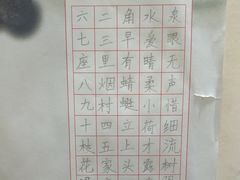 泉眼无声惜细流树
水爱晴柔小荷才露
角早有蜻蜓立上头
二三里烟村四五家
六七座八九十枝花